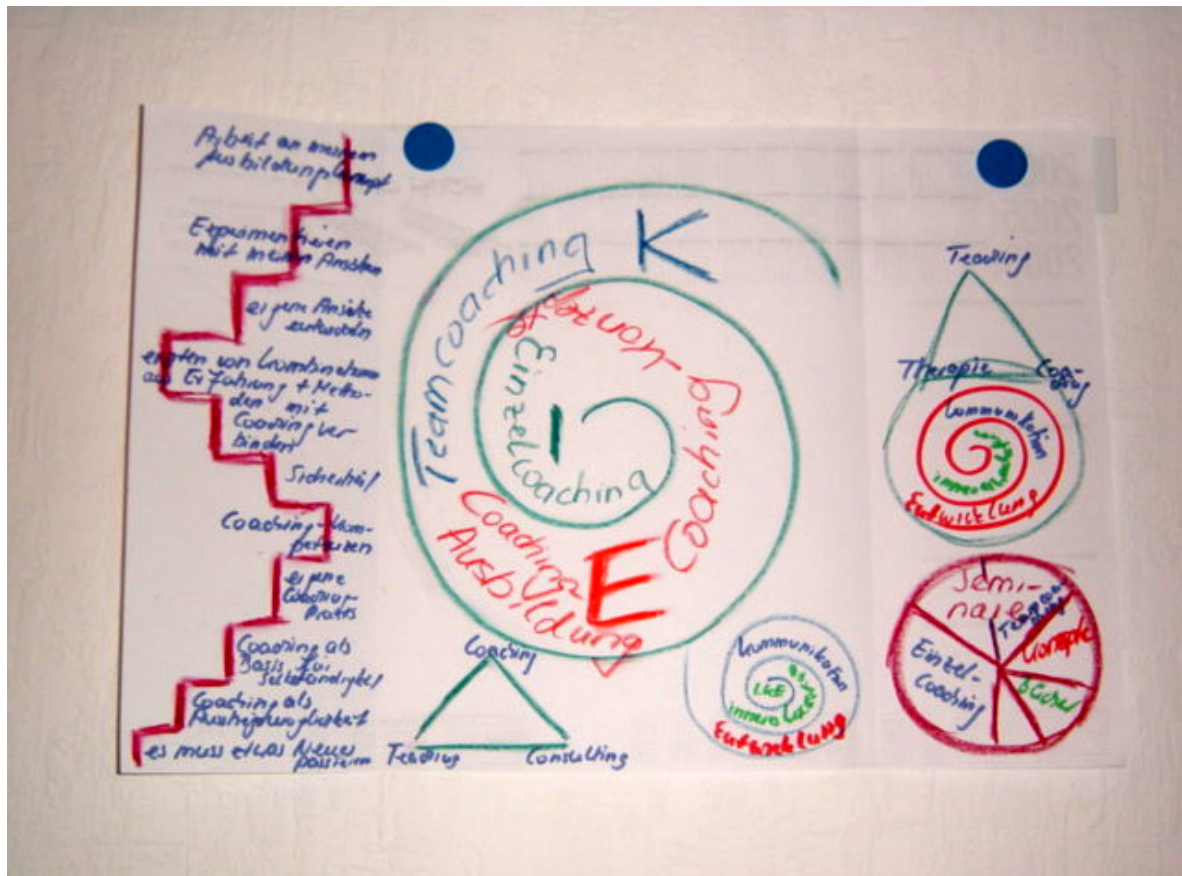 Arbeit an meinem
Ausbildungskonzept
Experimentieren
mit meinen Ansätzen
eigene Ansätze
entwickeln
von Kombinationen
aus Erfahrung + Metho-
den mit
Coaching ver
binden
Sicherheit
Coaching-Kom-
petenzen
eigene
Coaching-
Praxis
Coaching als
Basis für
Selbständigkeit
Coaching als
es muss etwas Neues
passieren
Teamcoaching
K
Coaching-Konzept
Einzelcoaching
I
Coaching
Ausbildung
E
Coaching
Teaching
Consulting
Kommunikation
innere
Entwicklung
Teaching
Therapie
Kommunikation
innere
Entwicklung
Semi-
nare
Konzepte
Bücher
Einzel-
Coaching